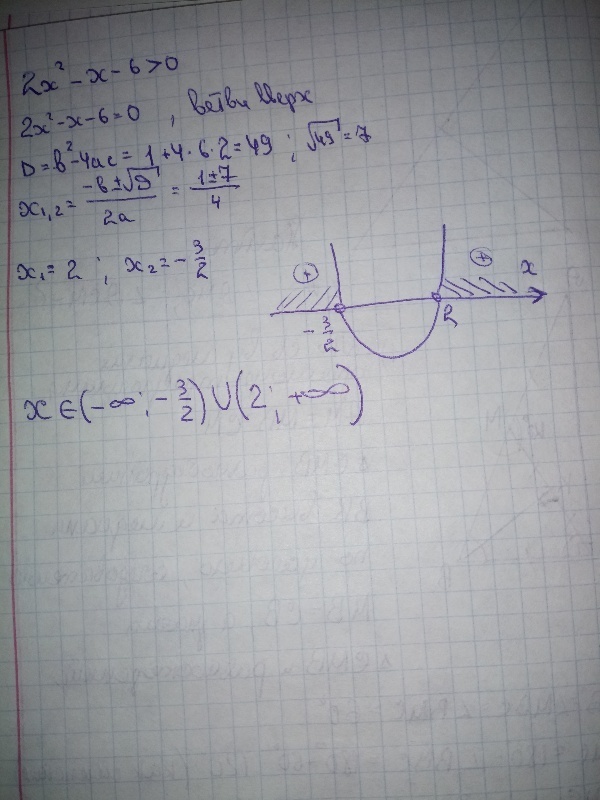 2x² - x - 6 > 0
2x² - x - 6 = 0 , ветви вверх
D = b² - 4ac = 1 + 4 · 6 · 2 = 49 ; √49 = 7
x₁,₂ = (-b ± √D)/2a = (1 ± 7)/4
x₁ = 2 ; x₂ = -3/2
+ + x
-3/2 2
x ∈ (-∞ ; -3/2) ∪ (2 ; +∞)